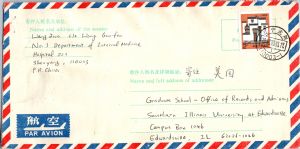 寄件人姓名及地址:
Name and address of the sender
No.1 Department of Internal Medicine
Shenyang 110003
P.R. China
收件人姓名及详细地址:
寄往 美国
Name and full address of addressee
Graduate School - Office of Records and Admissions
Southern Illinois University at Edwardsville
Campus Box 1046
Edwardsville IL 62026-1046
航空
PAR AVION